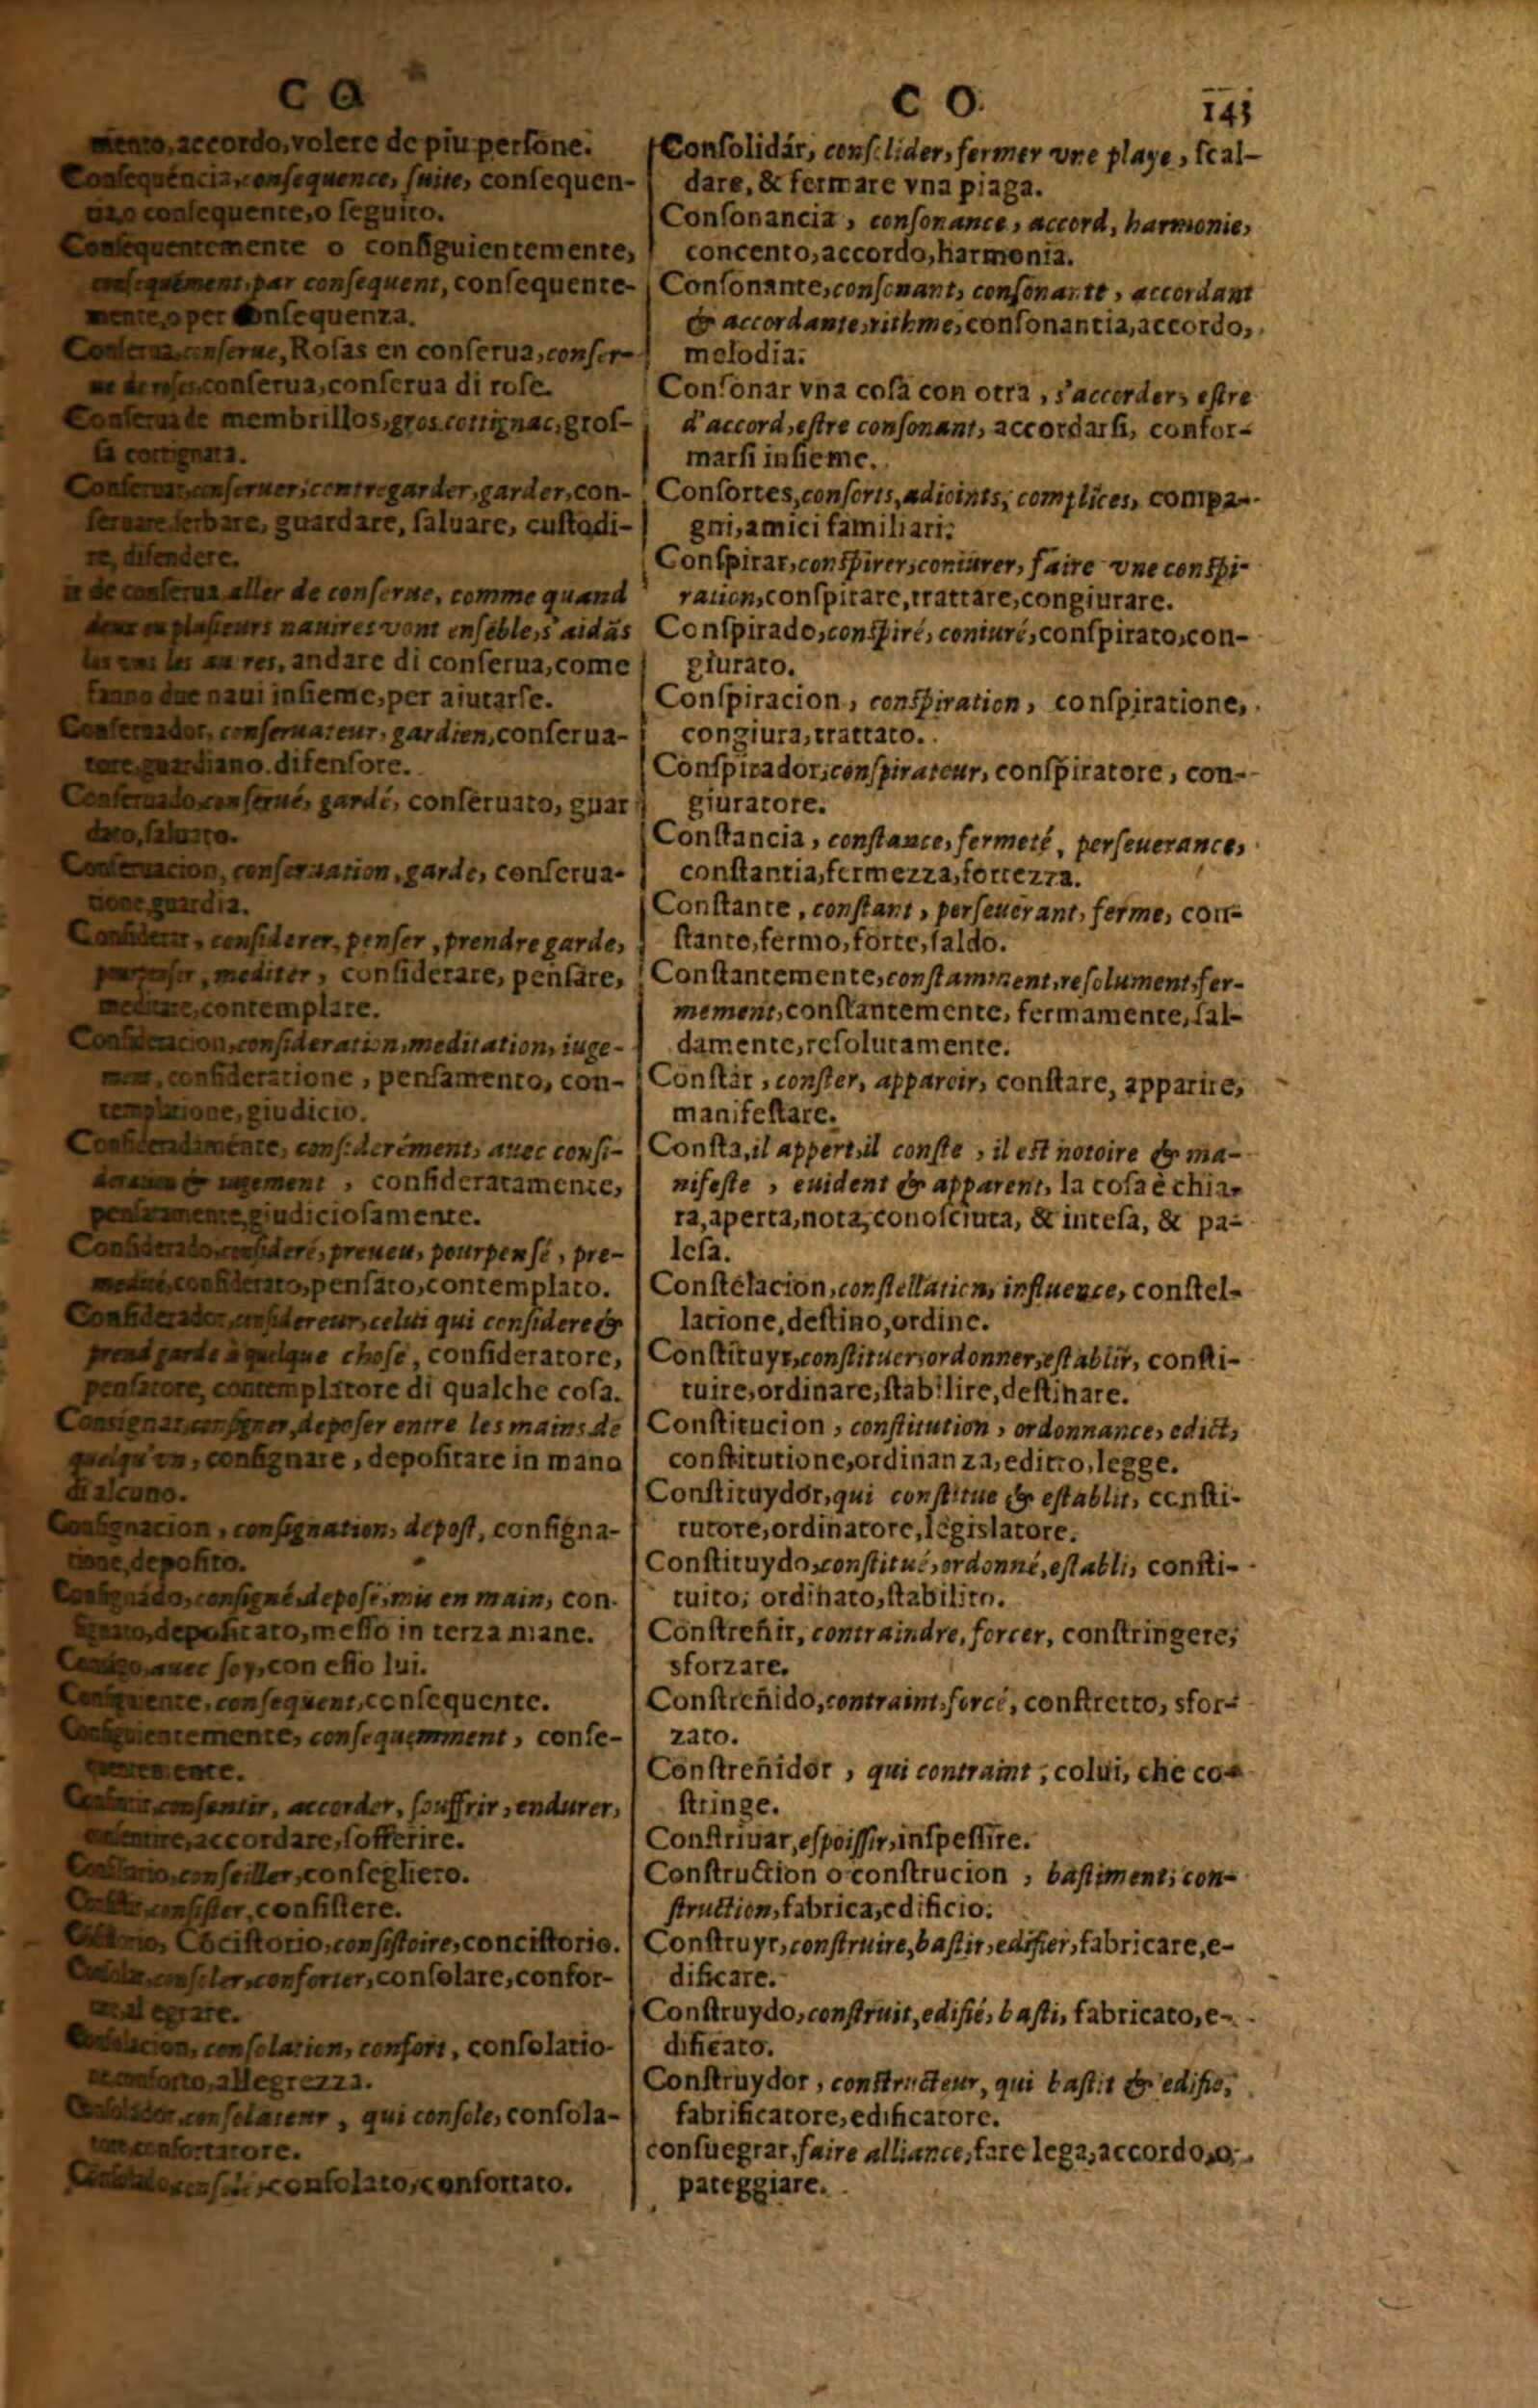 C O
miento, accordo, volere de piu persone.
Consequéncia, consequence, suite, consequen-
o consequente, o seguito.
Consequentemente o consiguientemente,
consequément, par consequent, consequente-
mente, o per consequenza.
Conserua, conserue, Rosas en conserua, conser-
ue de roses, conserua, conserua di rose.
Conserua de membrillos, gros cottignac, gros-
sa cottignata.
Conseruar, conseruer, contregarder, garder, con-
seruare, serbare, guardare, saluare, custodi-
re, difendere.
ir de conserua, aller de conserue, comme quand
deux ou plusieurs nauires vont ensẽble, s'aidãs
les vns les au res, andare di conserua, come
fanno due naui insieme, per aiutarse.
Conseruador, conseruateur, gardien, conserua-
tore, guardiano. difensore.
Conseruado, conserué, gardé, conseruato, guar
dato, saluato.
Conseruacion, conseruation, garde, conserua-
tione, guardia.
Considerar, considerer, penser, prendre garde,
pourpenser, mediter, considerare, pensare,
meditare, contemplare.
Consideracion, consideration, meditation, iuge-
ment, consideratione, pensamento, con-
templatione, giudicio.
Consideradaménte, considerément, auec consi-
deration & iugement, consideratamente,
pensatamente, giudiciosamente.
Considerado, consideré, preueu, pourpensé, pre-
medité, considerato, pensato, contemplato.
Considerador, considereur, celui qui considere &
prend garde à quelque chose, consideratore,
pensatore, contemplatore di qualche cosa.
Consignar, consigner, deposer entre les mains de
quelqu'vn, consignare, depositare in mano
di alcuno.
Consignacion, consignation, depost, consigna-
tione, deposito.
Consignado, consigné, deposé, mis en main, con-
signato, depositato, messo in terza mane.
Consigo, auec soy, con esso lui.
Consiguiente, consequent, consequente.
Consiguientemente, consequemment, conse-
quentemente.
Consentir, consentir, accorder, souffrir, endurer,
consentire, accordare, sofferire.
Consiliario, conseiller, consegliero.
Consistir, consister, consistere.
Consistorio, Cõcistorio, consistoire, concistorio.
Consolar, consoler, conforter, consolare, confor-
tare, al egrare.
Consolacion, consolation, confort, consolatio-
ne, conforto, allegrezza.
Consolador, consolateur, qui console, consola-
tore, confortatore.
Consolado, consolé, consolato, confortato.
C O. 145
Consolidár, consolider, fermer vne playe, scal-
dare, & fermare vna piaga.
Consonancia, consonance, accord, harmonie,
concento, accordo, harmonia.
Consonante, consonant, consonante, accordant
& accordante, rithme, consonantia, accordo,
melodia.
Consonar vna cosa con otra, s'accorder, estre
d'accord, estre consonant, accordarsi, confor-
marsi insieme.
Consortes, consorts, adioints, complices, compa-
gni, amici familiari.
Conspirar, conspirer, coniurer, faire vne conspi-
ration, conspirare, trattare, congiurare.
Conspirado, conspiré, coniuré, conspirato, con-
giurato.
Conspiracion, conspiration, conspiratione,
congiura, trattato.
Conspirador, conspirateur, conspiratore, con-
giuratore.
Constancia, constance, fermeté, perseuerance,
constantia, fermezza, fortezza.
Constante, constant, perseuerant, ferme, con-
stante, fermo, forte, saldo.
Constantemente, constamment, resolument, fer-
mement, constantemente, fermamente, sal-
damente, resolutamente.
Constár, conster, apparoir, constare, apparire,
manifestare.
Consta, il appert, il conste, il est notoire & ma-
nifeste, euident & apparent, la cosa è chia-
ra, aperta, nota, conosciuta, & intesa, & pa-
lesa.
Constelacion, constellation, influence, constel-
latione, destino, ordine.
Constituyr, constituer, ordonner, establir, consti-
tuire, ordinare, stabilire, destinare.
Constitucion, constitution, ordonnance, edict,
constitutione, ordinanza, editto, legge.
Constituydór, qui constitue & establit, consti-
tutore, ordinatore, legislatore.
Constituydo, constitué, ordonné, establi, consti-
tuito, ordinato, stabilito.
Constreñir, contraindre, forcer, constringere,
sforzare.
Constreñido, contraint, forcé, constretto, sfor-
zato.
Constreñidór, qui contraint, colui, che co-
stringe.
Constriuar, espoissir, inspessire.
Construction o construcion, bastiment, con-
struction, fabrica, edificio.
Construyr, construire, bastir, edifier, fabricare, e-
dificare.
Construydo, construit, edifié, basti, fabricato, e-
dificato.
Construydor, constructeur, qui bastit & edifie,
fabrificatore, edificatore.
consuegrar, faire alliance, fare lega, accordo, o,
pateggiare.